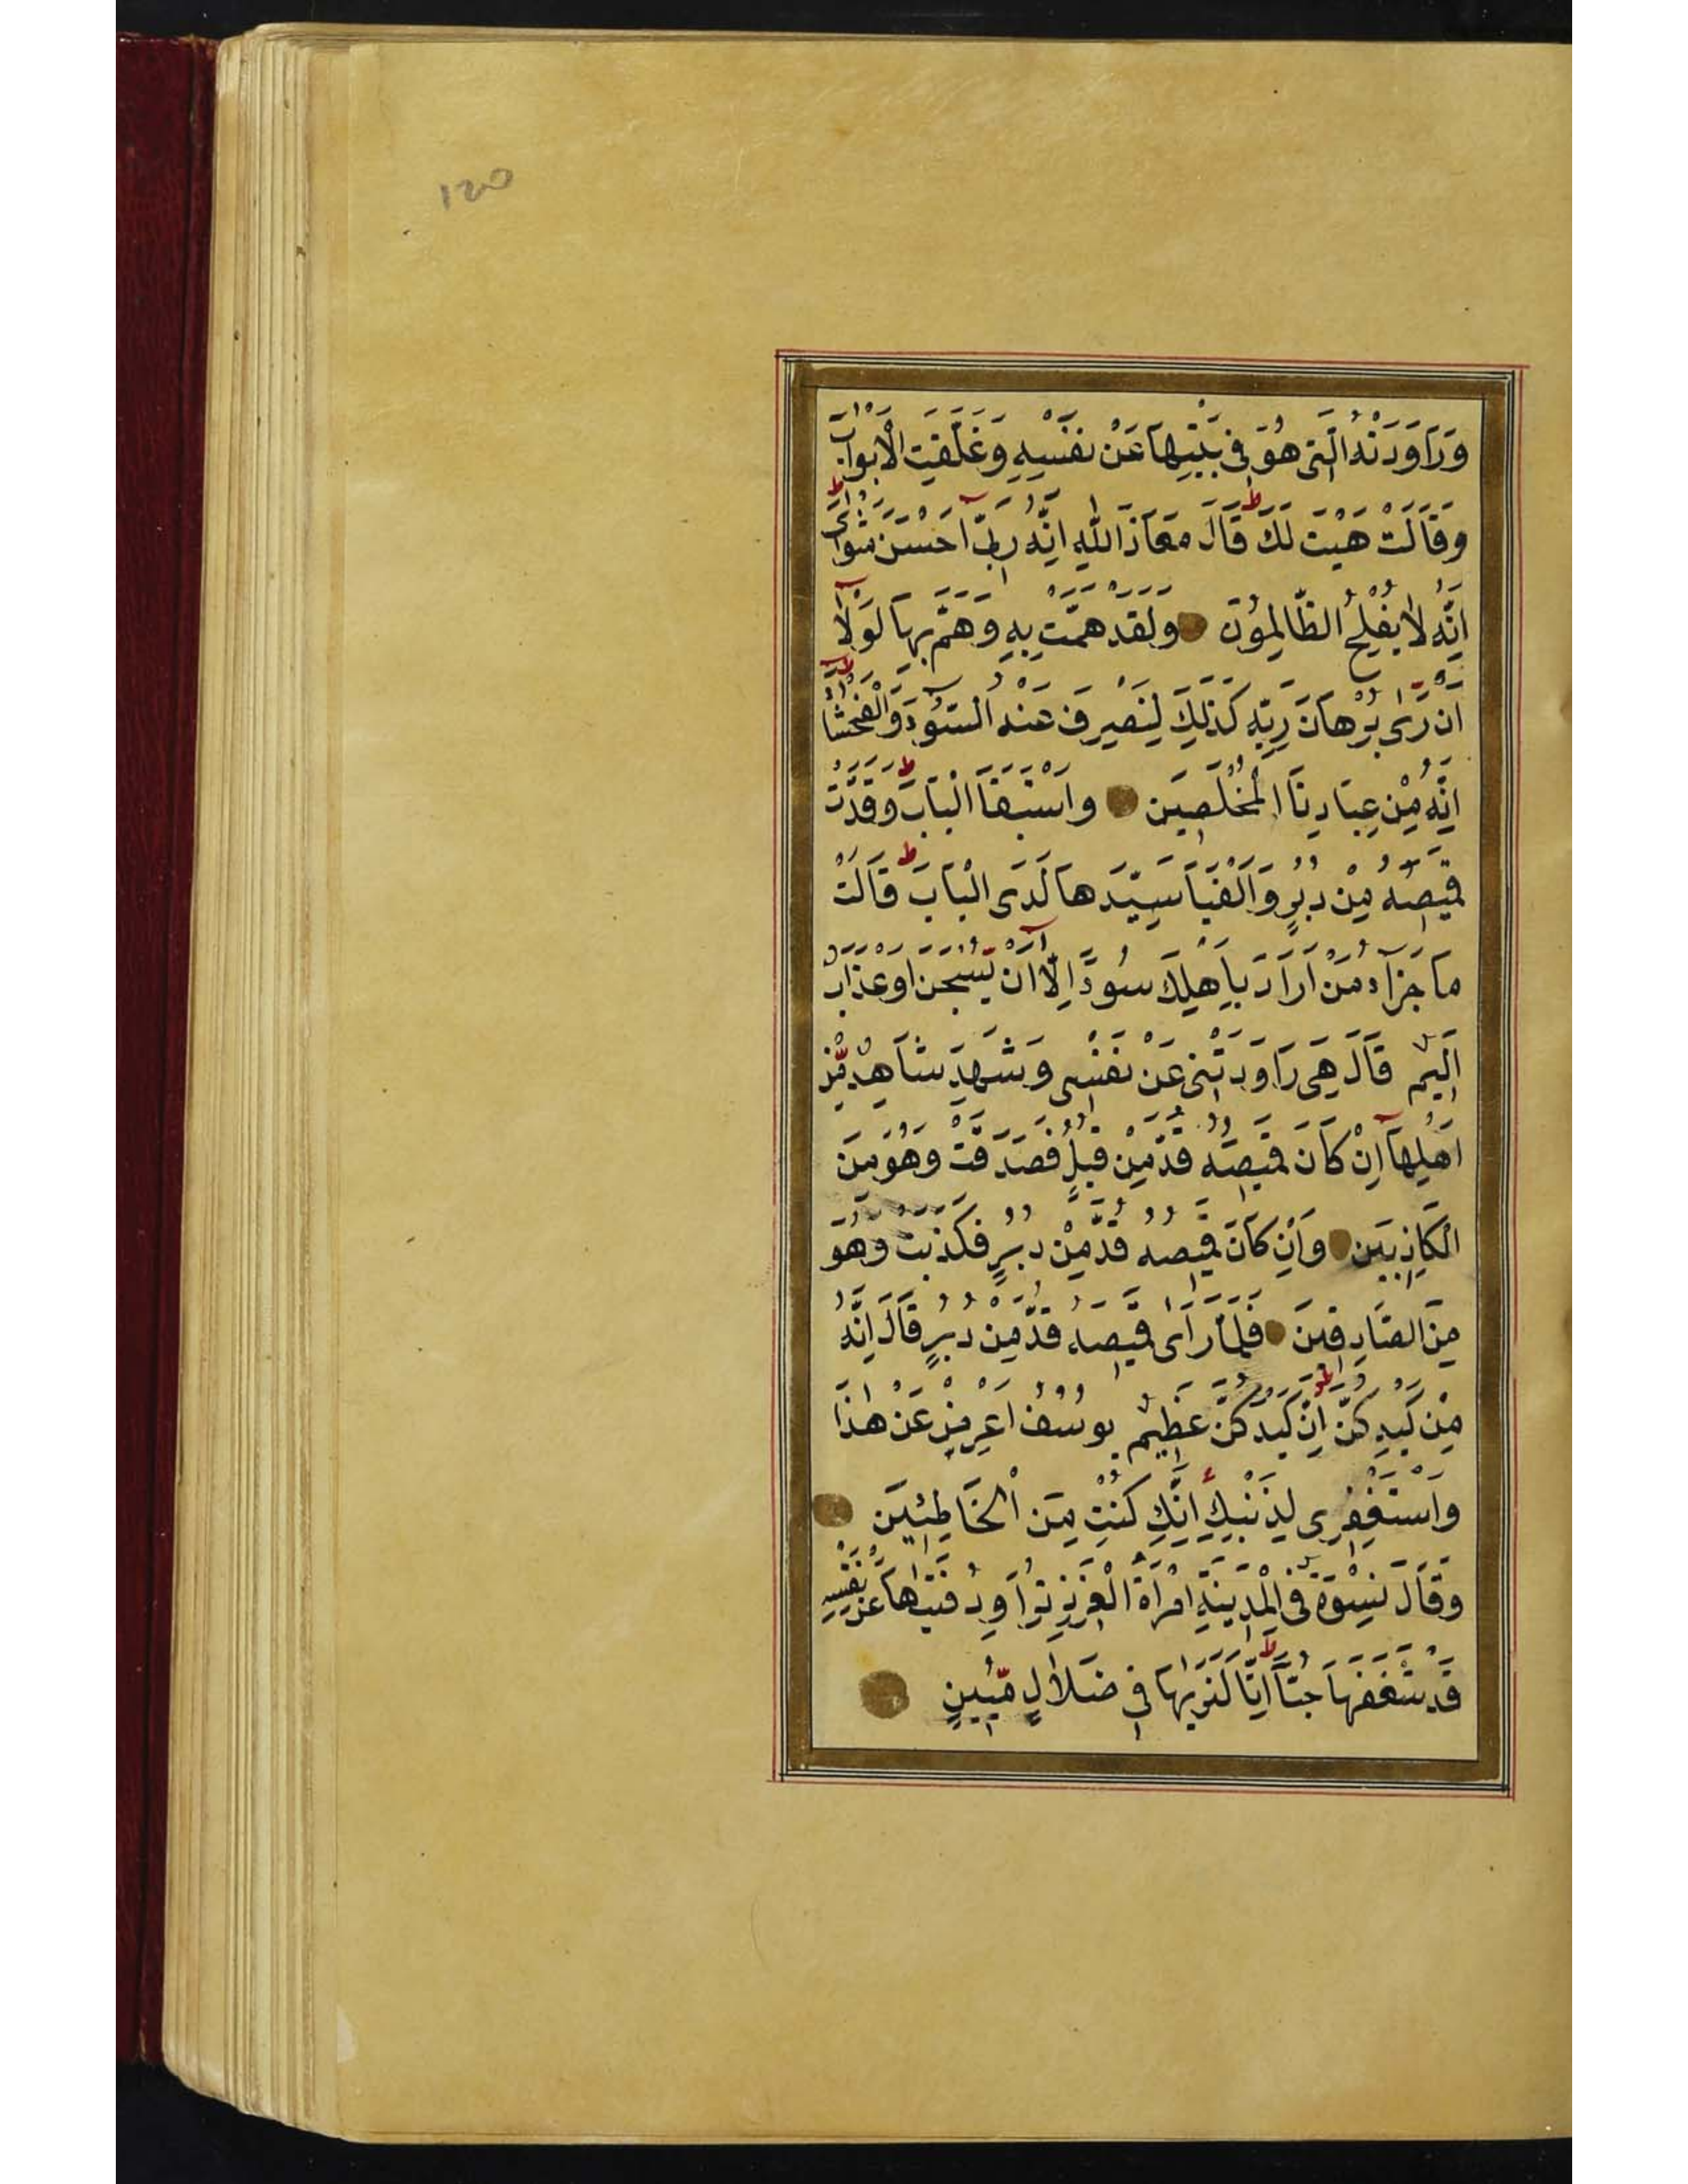 ١٢٥
وَرَاوَدَتْهُ الَّتِى هُوَ فِى بَيْتِهَا عَنْ نَفْسِهِ وَغَلَّقَتِ الْاَبْوَابَ
وَقَالَتْ هَيْتَ لَكَ ط قَالَ مَعَاذَ اللّٰهِ اِنَّهُ رَبِّى اَحْسَنَ مَثْوَاىَ ط
اِنَّهُ لَا يُفْلِحُ الظَّالِمُونَ وَلَقَدْ هَمَّتْ بِهِ وَهَمَّ بِهَا لَوْلَا
اَنْ رَّاٰى بُرْهَانَ رَبِّهِ كَذٰلِكَ لِنَصْرِفَ عَنْهُ السُّوٓءَ وَالْفَحْشَآ ط
اِنَّهُ مِنْ عِبَادِنَا الْمُخْلَصِينَ وَاسْتَبَقَا الْبَابَ ط وَقَدَّتْ
قَمِيصَهُ مِنْ دُبُرٍ وَاَلْفَيَا سَيِّدَهَا لَدَى الْبَابِ ط قَالَتْ
مَا جَزَآءُ مَنْ اَرَادَ بِاَهْلِكَ سُوٓءً اِلَّآ اَنْ يُّسْجَنَ اَوْ عَذَابٌ
اَلِيمٌ قَالَ هِىَ رَاوَدَتْنِى عَنْ نَفْسِى وَشَهِدَ شَاهِدٌ مِّنْ
اَهْلِهَآ اِنْ كَانَ قَمِيصُهُ قُدَّ مِنْ قُبُلٍ فَصَدَقَتْ وَهُوَ مِنَ
الْكَاذِبِينَ وَاِنْ كَانَ قَمِيصُهُ قُدَّ مِنْ دُبُرٍ فَكَذَبَتْ وَهُوَ
مِنَ الصَّادِقِينَ فَلَمَّا رَاٰى قَمِيصَهُ قُدَّ مِنْ دُبُرٍ قَالَ اِنَّهُ
مِنْ كَيْدِكُنَّ ط اِنَّ كَيْدَكُنَّ عَظِيمٌ يُوسُفُ اَعْرِضْ عَنْ هٰذَا
وَاسْتَغْفِرِى لِذَنْبِكِ اِنَّكِ كُنْتِ مِنَ الْخَاطِئِينَ
وَقَالَ نِسْوَةٌ فِى الْمَدِينَةِ امْرَاَةُ الْعَزِيزِ تُرَاوِدُ فَتٰيهَا عَنْ نَفْسِهِ
قَدْ شَغَفَهَا حُبًّا ط اِنَّا لَنَرٰيهَا فِى ضَلَالٍ مُّبِينٍ